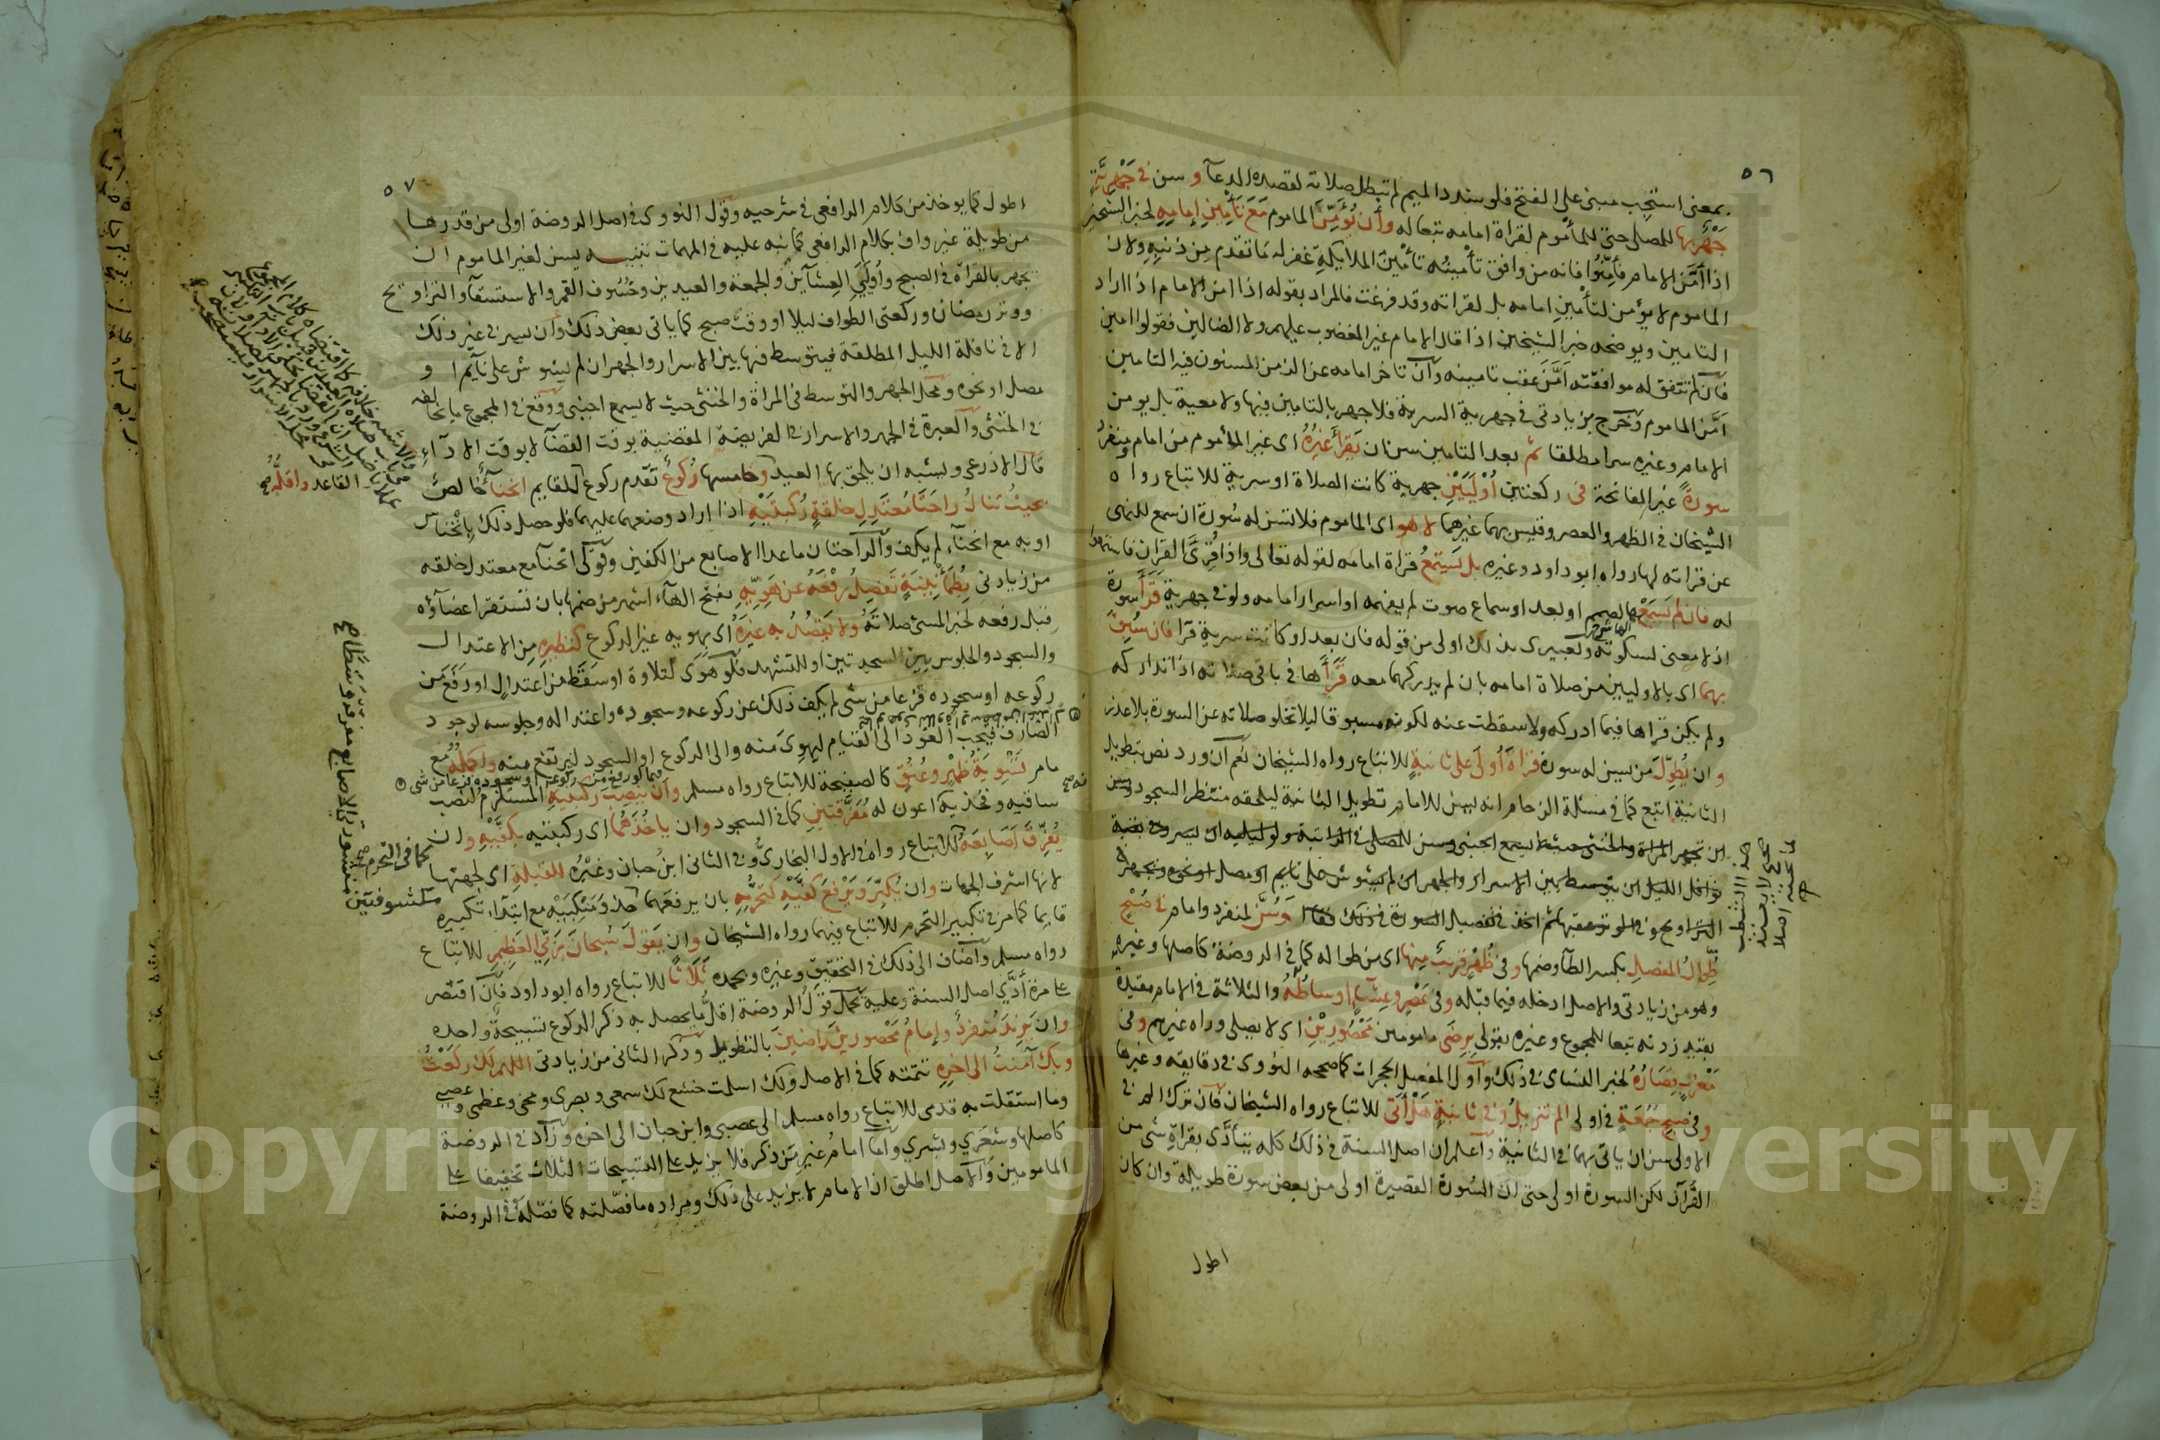 ٥٦
بمعنى استجب مبنى على الفتح فلو شدد الميم لم تبطل صلاته لقصده الدعآ وسن فى جهرية
جهر بها للمصلى حتى للمأموم لقراة امامه تبعا له وأن يؤمن المأموم مع تأمين إمامه لخبر الشيخين
اذا أمن الامام فأمنوا فانه من وافق تأمينه تأمين الملايكة غفر له ما تقدم من ذنبه ولان
الماموم لا يؤمن لتأمين امامه بل لقراته وقد فرغت فالمراد بقوله اذا امن الامام اذا اراد
التامين ويوضحه خبر الشيخين اذا قال الامام غير المغضوب عليهم ولا الضالين فقولوا امين
فان لم تتفق له موافقته أمن عقب تامينه وان تاخر امامه عن الزمن المسنون فيه التامين
أمن الماموم وخرج بزيادتى فى جهرية السرية فلا جهر بالتامين فيها ولا معية بل يومن
الامام وغيره سرا مطلقا ثم بعد التامين سن ان يقرأ غيره اى غير المأموم من امام ومنفرد
سورة غير الفاتحة فى ركعتين أوليين جهرية كانت الصلاة او سرية للاتباع رواه
الشيخان فى الظهر والعصر وقيس بهما غيرهما لا هو اى الماموم فلا تسن له سورة ان سمع للنهى
عن قراته لها رواه ابو داود وغيره بل يستمع قراة امامه لقوله تعالى واذا قرئ القران فاستمعوا
له فان لم يسمعها لصمم او بعد او سماع صوت لم يفهمه او اسرار امامه ولو فى جهرية قرأ سورة
اذ لا معنى لسكوته وتعبيرى بذلك اولى من قوله فان بعد او كانت سرية قرا فان سبق
بهما اى بالاوليين من صلاة امامه بان لم يدركهما معه قرأها فى باقى صلاته اذا تداركه
ولم يكن قراها فيما ادركه ولا سقطت عنه لكونه مسبوقا ليلا تخلو صلاته عن السورة بلا عذر
وان يطول من تسن له سورة قراة أولى على ثانية للاتباع رواه الشيخان نعم ان ورد نص بتطويل
الثانية اتبع كما فى مسئلة الزحام انه يسن للامام تطويل الثانية ليلحقه منتظر السجود وسن
وسن لمنفرد وامام فى صبح
طوال المفصل بكسر الطآ وضمها وفى ظهر قريب منها اى من طواله كما فى الروضة كاصلها وغيره
وهو من زيادتى والاصل ادخله فيما قبله وفى عصر وعشاء اوساطه والثلاثة فى الامام مقيدة
بقيد زدته تبعا للمجموع وغيره بقولى برضى مامومين محصورين اى لا يصلى وراه غيرهم وفى
مغرب قصاره لخبر النساى فى ذلك واول المفصل الحجرات كما صححه النووى فى دقايقه وغيرها
وفى صبح جمعة فى اولى الم تنزيل وفى ثانية هل أتى للاتباع رواه الشيخان فان ترك الم فى
الاولى سن ان ياتى بهما فى الثانية واعلم ان اصل السنة فى ذلك كله يتأدى بقراة شى من
القرآن لكن السورة اولى حتى ان السورة القصيرة اولى من بعض سورة طويلة وان كان
اطول
٥٧
اطول كما يوخذ من كلام الرافعى فى شرحيه وقول النووى فى اصل الروضة اولى من قدرها
من طويلة غير واف بكلام الرافعى كما نبه عليه فى المهمات تنبيه يسن لغير الماموم ان
يجهر بالقراة فى الصبح وأوليى العشآين والجمعة والعيدين وخسوف القمر والاستسقآ والتراويح
ووتر رمضان وركعتى الطواف ليلا او وقت صبح كما ياتى بعض ذلك وان يسر فى غير ذلك
الا فى نافلة الليل المطلقة فيتوسط فيها بين الاسرار والجهر ان لم يشوش على نايم او
مصل او نحوه ومحل الجهر والتوسط فى المراة والخنثى حيث لا يسمع اجنبى ووقع فى المجموع ما يخالفه
فى الخنثى والعبرة فى الجهر والاسرار فى الفريضة المقضية بوقت القضآ لا بوقت الادآء
قال الاذرعى ويشبه ان يلحق بها العيد وخامسها ركوع تقدم ركوع القايم انحنآ خالص
بحيث تنال راحتا معتدل خلقة ركبتيه اذا اراد وضعهما عليهما فلو حصل ذلك بانخناس
او به مع انحنآء لم يكف والراحتان ماعدا الاصابع من الكفين وقولى انحنآ مع معتدل خلقه
من زيادتى بطمأنينة تفصل رفعه عن هويه بفتح الهآء اشهر من ضمها بان تستقر اعضآؤه
قبل رفعه لخبر المسئ صلاته ولا يقصد به غيره اى بهويه غير الركوع كنظيره من الاعتدال
والسجود والجلوس بين السجدتين او للتشهد فلو هوى لتلاوة او سقط من اعتدال او رفع من
ركوعه او سجوده فزعا من شى لم يكف ذلك عن ركوعه وسجوده واعتداله وجلوسه لوجود
الصارف فيجب العود الى القيام ليهوى منه والى الركوع او السجود ليرتفع منه واكمله مع
مامر تسوية ظهر وعنق كالصفيحة للاتباع رواه مسلم وان ينصب ركبتيه المستلزم لنصب
ساقيه وفخذيه اعون له مفرقتين كما فى السجود وان ياخذهما اى ركبتيه بكفيه وان
يفرق أصابعه للاتباع رواه فى الاول البخارى وفى الثانى ابن حبان وغيره للقبلة اى لجهتها
لانها اشرف الجهات وان يكبر ويرفع كفيه كتحرمه بان يرفعهما حذو منكبيه مع ابتدآء تكبيره
قايما كما مر فى تكبير التحرم للاتباع فيهما رواه الشيخان وان يقول سبحان ربى العظيم للاتباع
رواه مسلم واضاف الى ذلك فى التحقيق وغيره وبحمده ثلاثا للاتباع رواه ابو داود فان اقتصر
على مرة أدى اصل السنة وعليه يحمل قول الروضة اقل ما يحصل به ذكر الركوع تسبيحة واحدة
وان يزيد منفرد وإمام محصورين راضين بالتطويل وذكر الثانى من زيادتى اللهم لك ركعت
وبك آمنت الى اخره تتمته كما فى الاصل ولك اسلمت خشع لك سمعى وبصرى ومخى وعظمى وعصبى
وما استقلت به قدمى للاتباع رواه مسلم الى عصبى وابن حبان الى اخره وزاد فى الروضة
كاصلها وشعرى وبشرى واما امام غير من ذكر فلا يزيد على التسبيحات الثلاث تخفيفا على
المامومين والاصل اطلق ان الامام لا يزيد على ذلك ومراده ما فصلته كما فصله فى الروضة
القاعد واقله
كما فى التحرم
Copyright © King Saud University